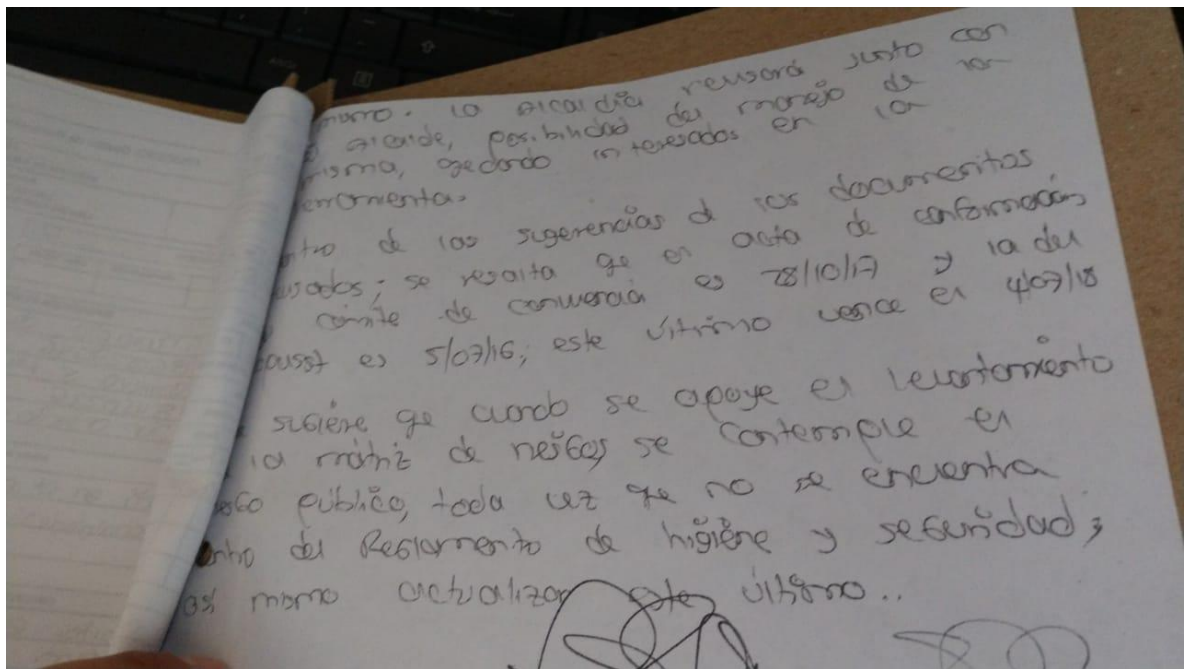 mismo. la alcaldía revisará junto con
alcalde, posibilidad del manejo de la
misma, qedando interesados en la
erramienta.
ntro de las sugerencias d los documentos
usados; se resalta qe el acta de conformación
comite de convivencia es 28/10/17 y la del
passt es 5/07/16; este último vence el 4/07/18
sugiére qe cuando se apoye el levantamiento
la matriz de riesgos, se contemple el
esgo público, toda vez qe no se encuentra
entro del Reglamento de higiéne y seguridad;
así mismo actualizar este último..